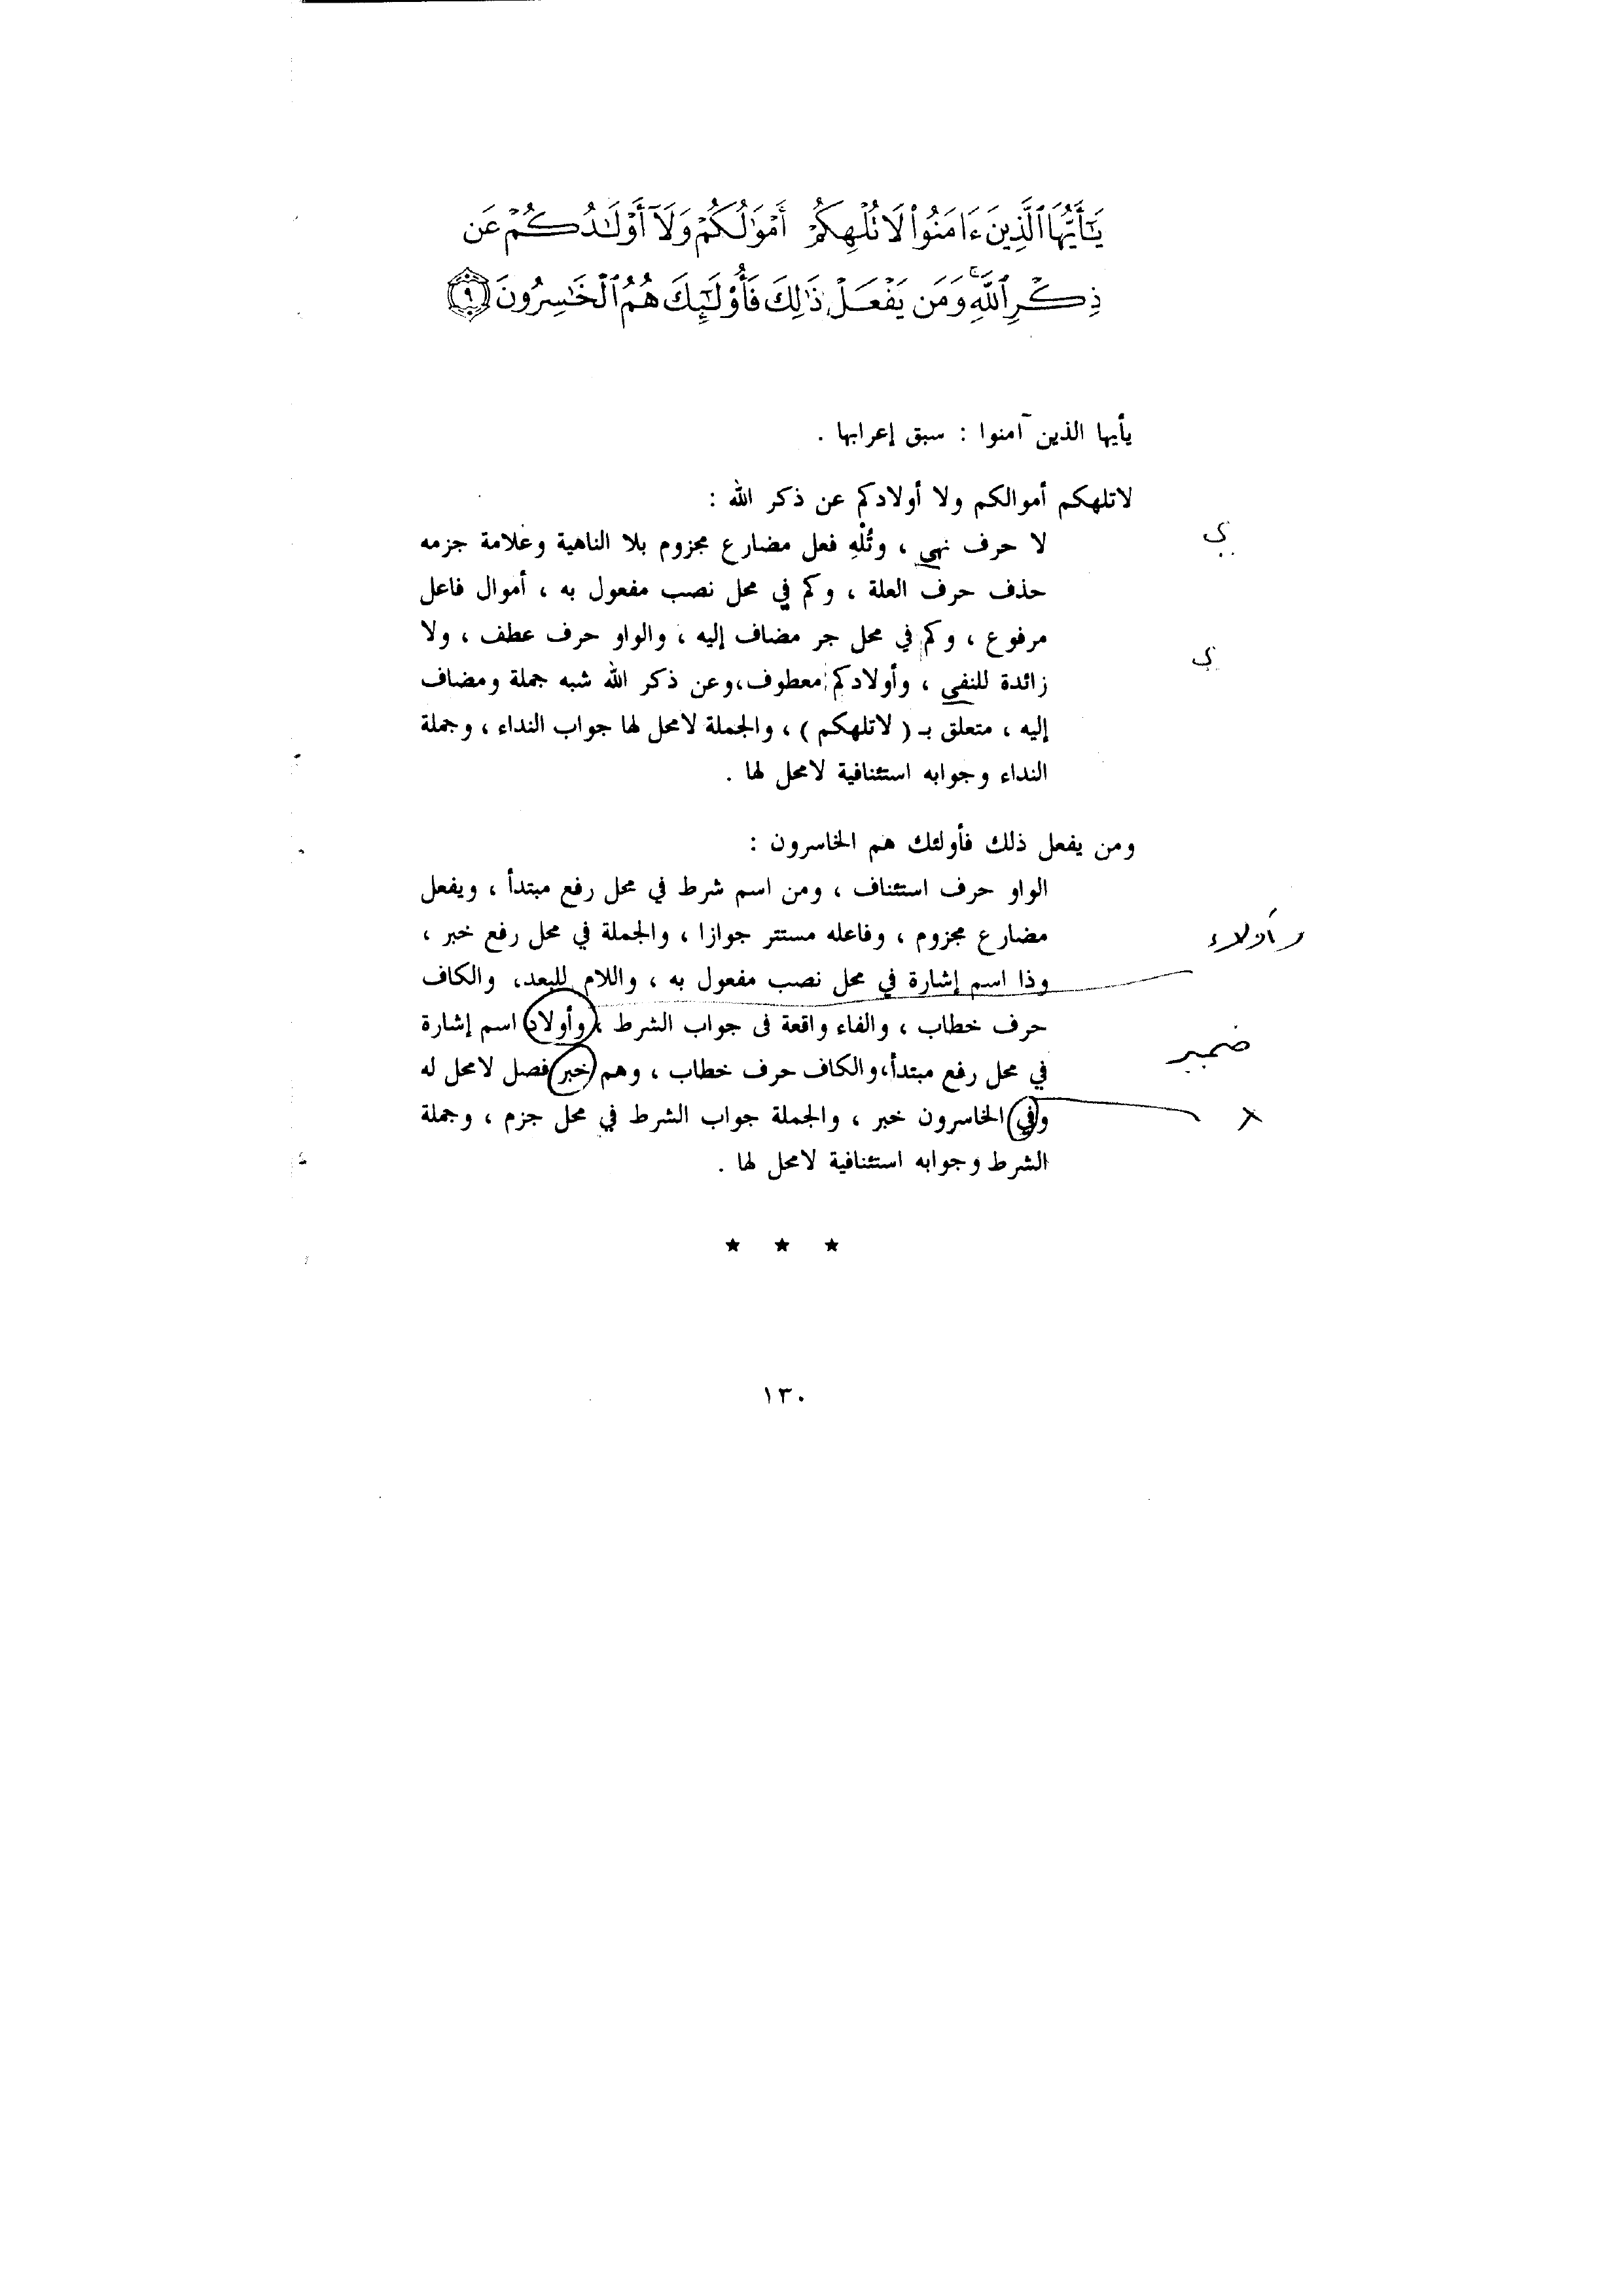 يَٰٓأَيُّهَا ٱلَّذِينَ ءَامَنُوا۟ لَا تُلْهِكُمْ أَمْوَٰلُكُمْ وَلَآ أَوْلَٰدُكُمْ عَن
ذِكْرِ ٱللَّهِ ۚ وَمَن يَفْعَلْ ذَٰلِكَ فَأُو۟لَٰٓئِكَ هُمُ ٱلْخَٰسِرُونَ ٩
يأيها الذين آمنوا : سبق إعرابها .
لاتلهكم أموالكم ولا أولادكم عن ذكر الله :
لا حرف نهي ، وتُلْهِ فعل مضارع مجزوم بلا الناهية وعلامة جزمه
ي
حذف حرف العلة ، وكم في محل نصب مفعول به ، أموال فاعل
مرفوع ، وكم في محل جر مضاف إليه ، والواو حرف عطف ، ولا
ي
زائدة للنفي ، وأولادكم معطوف، وعن ذكر الله شبه جملة ومضاف
إليه ، متعلق بـ ( لاتلهكم ) ، والجملة لامحل لها جواب النداء ، وجملة
النداء وجوابه استئنافية لامحل لها .
ومن يفعل ذلك فأولئك هم الخاسرون :
الواو حرف استئناف ، ومن اسم شرط في محل رفع مبتدأ ، ويفعل
مضارع مجزوم ، وفاعله مستتر جوازا ، والجملة في محل رفع خبر ،
وأولاء
وذا اسم إشارة في محل نصب مفعول به ، واللام للبعد، والكاف
حرف خطاب ، والفاء واقعة فى جواب الشرط ، وأولاد اسم إشارة
ضمير
في محل رفع مبتدأ، والكاف حرف خطاب ، وهم خبر فصل لامحل له
وفي الخاسرون خبر ، والجملة جواب الشرط في محل جزم ، وجملة
الشرط وجوابه استئنافية لامحل لها .
★ ★ ★
١٣٠